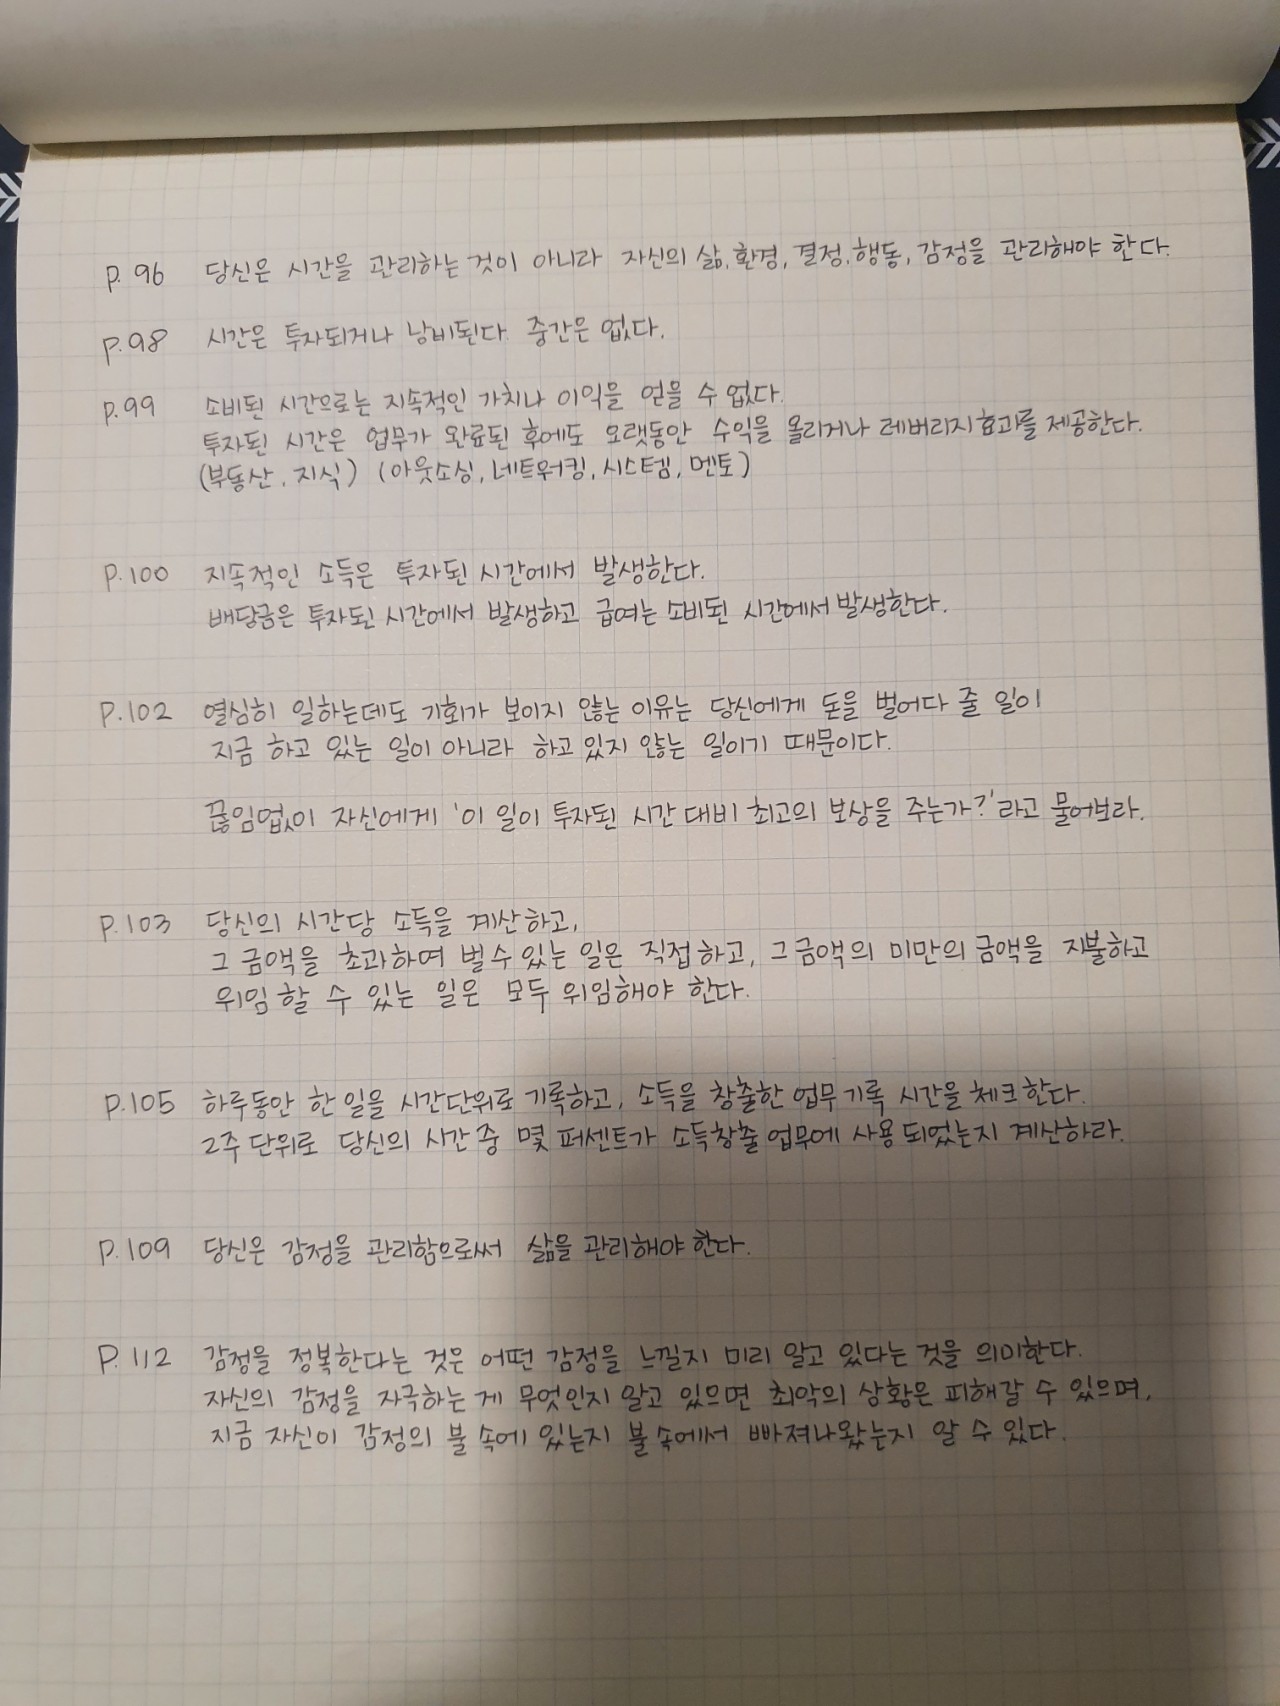 P. 96 당신은 시간을 관리하는 것이 아니라 자신의 삶, 환경, 결정, 행동, 감정을 관리해야 한다.
P. 98 시간은 투자되거나 낭비된다. 중간은 없다.
P. 99 소비된 시간으로는 지속적인 가치나 이익을 얻을 수 없다.
투자된 시간은 업무가 완료된 후에도 오랫동안 수익을 올리거나 레버리지 효과를 제공한다.
(부동산, 지식) (아웃소싱, 네트워킹, 시스템, 멘토)
P. 100 지속적인 소득은 투자된 시간에서 발생한다.
배당금은 투자된 시간에서 발생하고 급여는 소비된 시간에서 발생한다.
P. 102 열심히 일하는데도 기회가 보이지 않는 이유는 당신에게 돈을 벌어다 줄 일이
지금 하고 있는 일이 아니라 하고 있지 않는 일이기 때문이다.
끊임없이 자신에게 '이 일이 투자된 시간 대비 최고의 보상을 주는가?'라고 물어보라.
P. 103 당신의 시간당 소득을 계산하고,
그 금액을 초과하여 벌 수 있는 일은 직접하고, 그 금액의 미만의 금액을 지불하고
위임 할 수 있는 일은 모두 위임해야 한다.
P. 105 하루동안 한 일을 시간단위로 기록하고, 소득을 창출한 업무 기록 시간을 체크한다.
2주 단위로 당신의 시간 중 몇 퍼센트가 소득창출 업무에 사용 되었는지 계산하라.
P. 109 당신은 감정을 관리함으로써 삶을 관리해야 한다.
P. 112 감정을 정복한다는 것은 어떤 감정을 느낄지 미리 알고 있다는 것을 의미한다.
자신의 감정을 자극하는 게 무엇인지 알고 있으면 최악의 상황은 피해갈 수 있으며,
지금 자신이 감정의 불 속에 있는지 불 속에서 빠져나왔는지 알 수 있다.